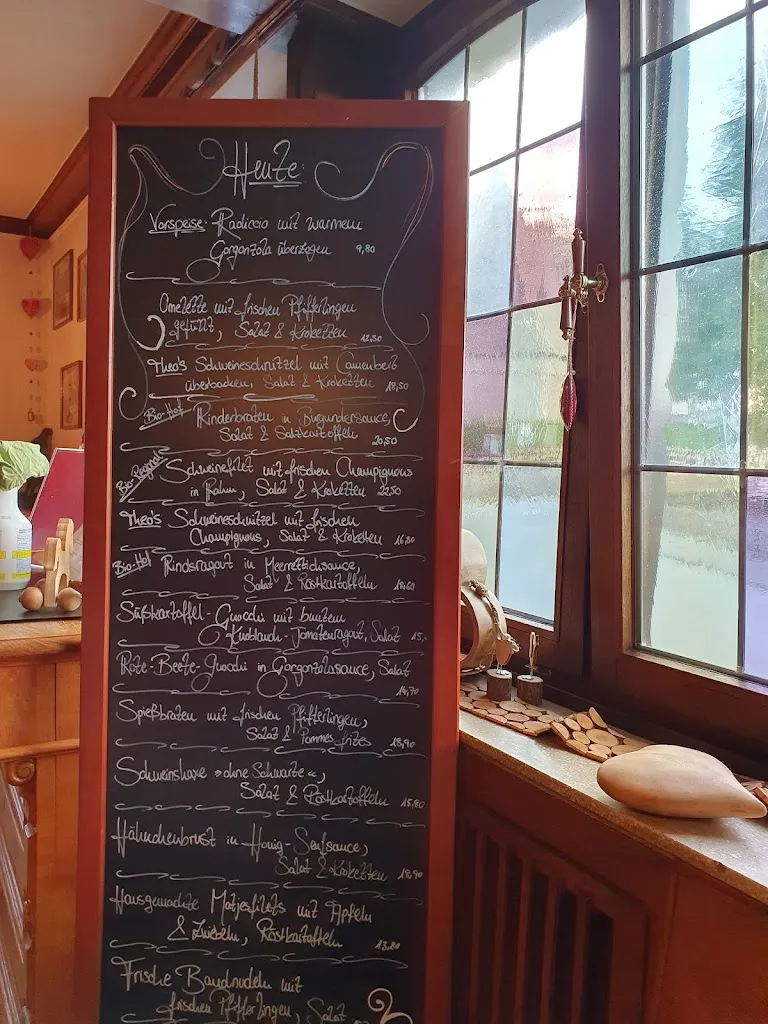 Heute:
Vorspeise: Radiccio mit warmem
Gorgonzola überzogen 9,80
Omelette mit frischen Pfifferlingen
gefüllt, Salat & Kroketten
Theo's Schweineschnitzel mit Camenbert
überbacken, Salat & Kroketten 18,50
Bio-Hof Rinderbraten in Burgundersauce,
Salat & Salzkartoffeln 20,50
Bio-Regional Schweinefilet mit frischen Champignons
in Rahm, Salat & Kroketten 22,50
Theo's Schweineschnitzel mit frischen
Champignons, Salat & Kroketten 16,80
Bio-Hof Rindsragout in Meerrettichsauce,
Salat & Röstkartoffeln 18,60
Süßkartoffel-Gnocchi mit buntem
Knoblauch-Tomatenragout, Salat 15,-
Rote-Beete-Gnocchi in Gorgonzolasauce, Salat
14,70
Spießbraten mit frischen Pfifferlingen,
Salat & Pommes frites 18,90
Schweinshaxe »ohne Schwarte«,
Salat & Röstkartoffeln 15,80
Hähnchenbrust in Honig-Senfsauce,
Salat & Kroketten 18,90
Hausgemachte Matjesfilets mit Äpfeln
& Zwiebeln, Röstkartoffeln 15,80
Frische Bandnudeln mit
frischen Pfifferlingen, Salat